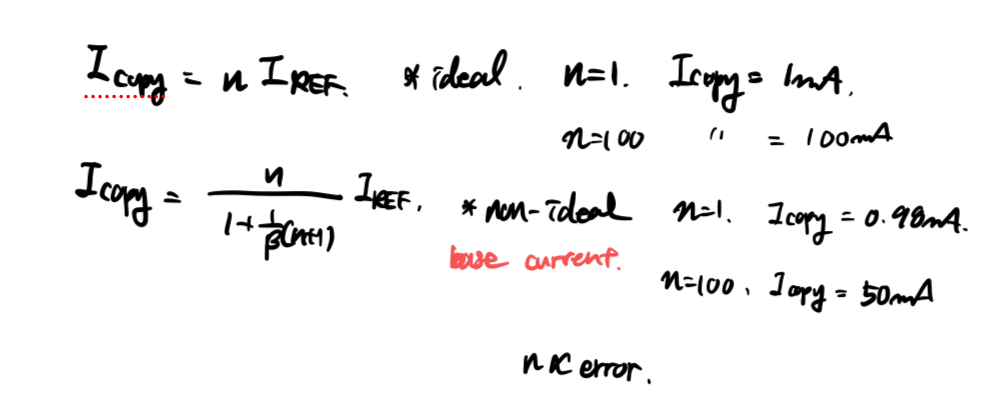 I_copy = n I_REF. * ideal. n=1. I_copy = 1mA.
n=100 〃 = 100mA
I_copy = n / (1 + 1/β (n+1)) I_REF. * non-ideal n=1. I_copy = 0.98mA.
base current.
n=100, I_copy = 50mA
n ∝ error.